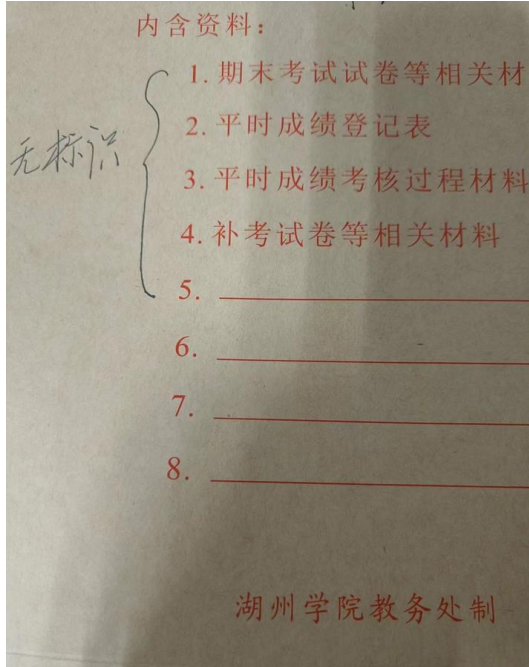 内含资料:
1. 期末考试试卷等相关材
2. 平时成绩登记表
无标识
3. 平时成绩考核过程材料
4. 补考试卷等相关材料
5.
6.
7.
8.
湖州学院教务处制